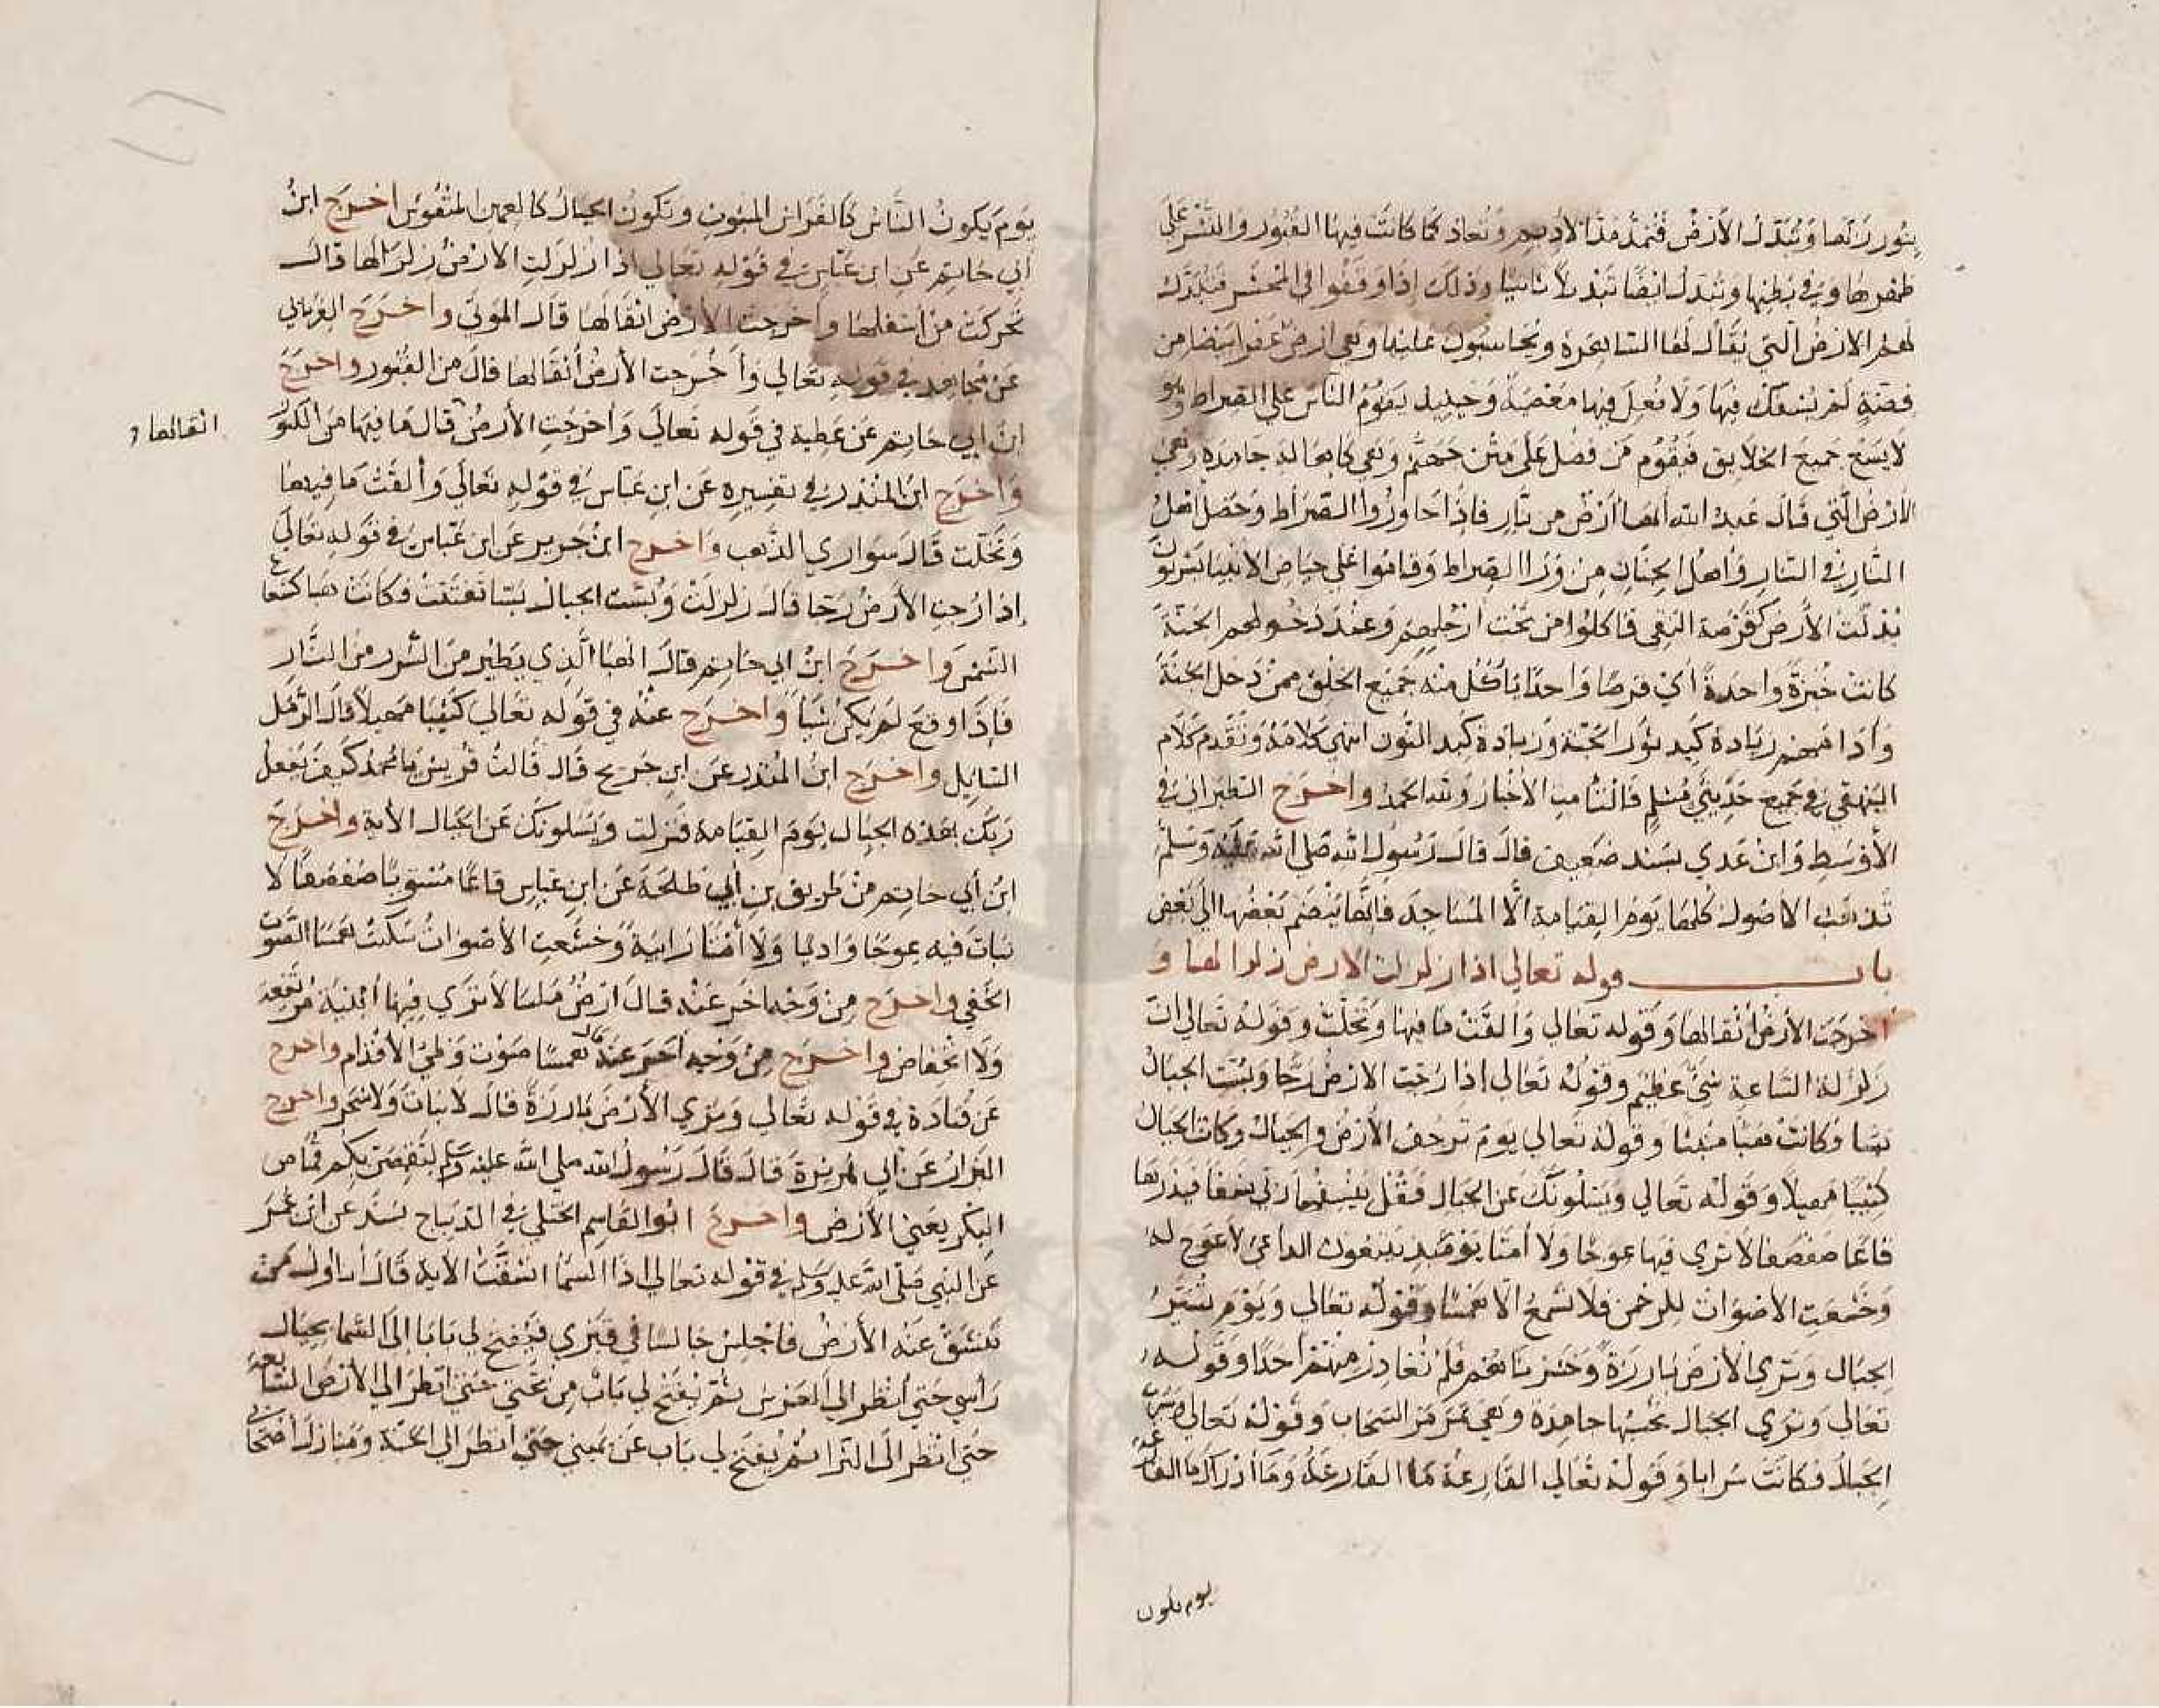 بنور ربها وتبدل الأرض فتمد مد الأديم وتعاد كما كانت فيها القبور والبشر على
ظهرها وفي بطنها وتبدل ايضا تبديلا ثانيا وذلك إذا وقفوا في المحشر فتبدل
لهم الارض التي يقال لها الساهرة ويحاسبون عليها وهي ارض عفرا بيضا من
فضة لم يسفك فيها ولا فعل فيها معصية وحينيذ يقوم الناس على الصراط وهو
لا يسع جميع الخلايق فيقوم من فضل على متن جهنم وهي كاهالة جامدة وهي
الأرض التي قال عبد الله انها ارض من نار فإذا جاوزوا الصراط وحصل اهل
النار في النار وأهل الجنان من ورا الصراط وقاموا على حياض الانبيا يشربون
بدلت الأرض كقرصة النقي فاكلوا من تحت ارجلهم وعند دخولهم الجنة
كانت خبزة واحدة أي قرصا واحدا يأكل منه جميع الخلق ممن دخل الجنة
وادامهم زيادة كبد ثور الجنة وزيادة كبد النون انتهى كلامه وتقدم كلام
البيهقي في جميع حديثي مسلم فالتأمت الأخبار ولله الحمد واخرج الطبراني في
الأوسط وابن عدي بسند ضعيف قال قال رسول الله صلى الله عليه وسلم
تذهب الاضون كلها يوم القيامة الا المساجد فانها ينضم بعضها الى بعض
باب قوله تعالى اذا زلزلت الارض زلزالها و
اخرجت الأرض أثقالها وقوله تعالى والقت ما فيها وتخلت وقوله تعالى ان
زلزلة الساعة شيء عظيم وقوله تعالى اذا رجت الارض رجا وبست الجبال
بسا فكانت هبا منبثا وقوله تعالى يوم ترجف الأرض والجبال وكانت الجبال
كثيبا مهيلا وقوله تعالى ويسئلونك عن الجبال فقل ينسفها ربي نسفا فيذرها
قاعا صفصفا لا ترى فيها عوجا ولا أمتا يومئذ يتبعون الداعي لا عوج له
وخشعت الأصوات للرحمن فلا تسمع الا همسا وقوله تعالى ويوم تسير
الجبال وترى الأرض بارزة وحشرناهم فلم نغادر منهم احدا وقوله
تعالى وترى الجبال تحسبها جامدة وهي تمر مر السحاب وقوله تعالى وسيرت
الجبال فكانت سرابا وقوله تعالى القارعة ما القارعة وما أدراك ما القارعة
يوم تكون
يوم يكون الناس كالفراش المبثوث وتكون الجبال كالعهن المنفوش اخرج ابن
أبي حاتم عن ابن عباس في قوله تعالى اذا زلزلت الارض زلزالها قال
تحركت من اسفلها وأخرجت الأرض اثقالها قال الموتى واخرج الفريابي
عن مجاهد في قوله تعالى وأخرجت الأرض أثقالها قال من القبور واخرج
ابن ابي حاتم عن عطية في قوله تعالى وأخرجت الأرض قال ما فيها من الكنوز
اثقالها
وأخرج ابن المنذر في تفسيره عن ابن عباس في قوله تعالى وألقت ما فيها
وتخلت قال سواري الذهب واخرج ابن جرير عن ابن عباس في قوله تعالى
إذا رجت الأرض رجا قال زلزلت وبست الجبال بسا تفتتت فكانت هبا كشعاع
الشمس واخرج ابن ابي حاتم قال الهبا الذي يطير من الشرر من النار
فإذا وقع لم يكن شيا واخرج عنه في قوله تعالى كثيبا مهيلا قال الرمل
السايل واخرج ابن المنذر عن ابن جريج قال قالت قريش يا محمد كيف يفعل
ربك بهذه الجبال يوم القيامة فنزلت ويسلونك عن الجبال الأية واخرج
ابن أبي حاتم من طريق بن أبي طلحة عن ابن عباس قاعا مستويا صفصفا لا
نبات فيه عوجا واديا ولا أمتا رابية وخشعت الأصوات سكنت همسا الصوت
الخفي واخرج من وجه اخر عنه قال ارض ملسا لا ترى فيها أبنية مرتفعة
ولا انخفاض واخرج من وجه اخر عنه همسا صوت وطي الأقدام واخرج
عن قتادة في قوله تعالى وترى الأرض بارزة قال لا بنات ولا شجر واخرج
البزار عن ابي هريرة قال قال رسول الله صلى الله عليه وسلم لتقمصن بكم قماص
البكر يعني الأرض واخرج ابو القاسم الختلي في الديباج بسند عن ابن عمر
عن النبي صلى الله عليه وسلم في قوله تعالى اذا السما انشقت الاية قال أنا اول من
تنشق عنه الأرض فاجلس جالسا في قبري فيفتح لي بابا إلى السما بحيال
رأسي حتى أنظر الى العرش ثم يفتح لي باب من تحتي حتى انظر الى الأرض السابعة
حتى انظر الى الثرا ثم يفتح لي باب عن يميني حتى انظر الى الجنة ومنازل أصحابي